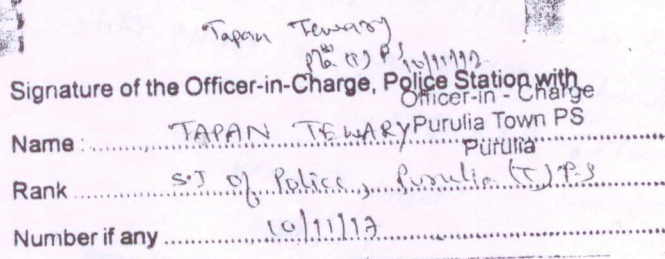 Tapan Tewary
P.S 10/11/17
Signature of the Officer-in-Charge, Police Station with
Officer-in - Charge
Name : TAPAN TEWARY Purulia Town PS
Purulia
Rank S.I of Police, Purulia (T) P.S
Number if any 10/11/17